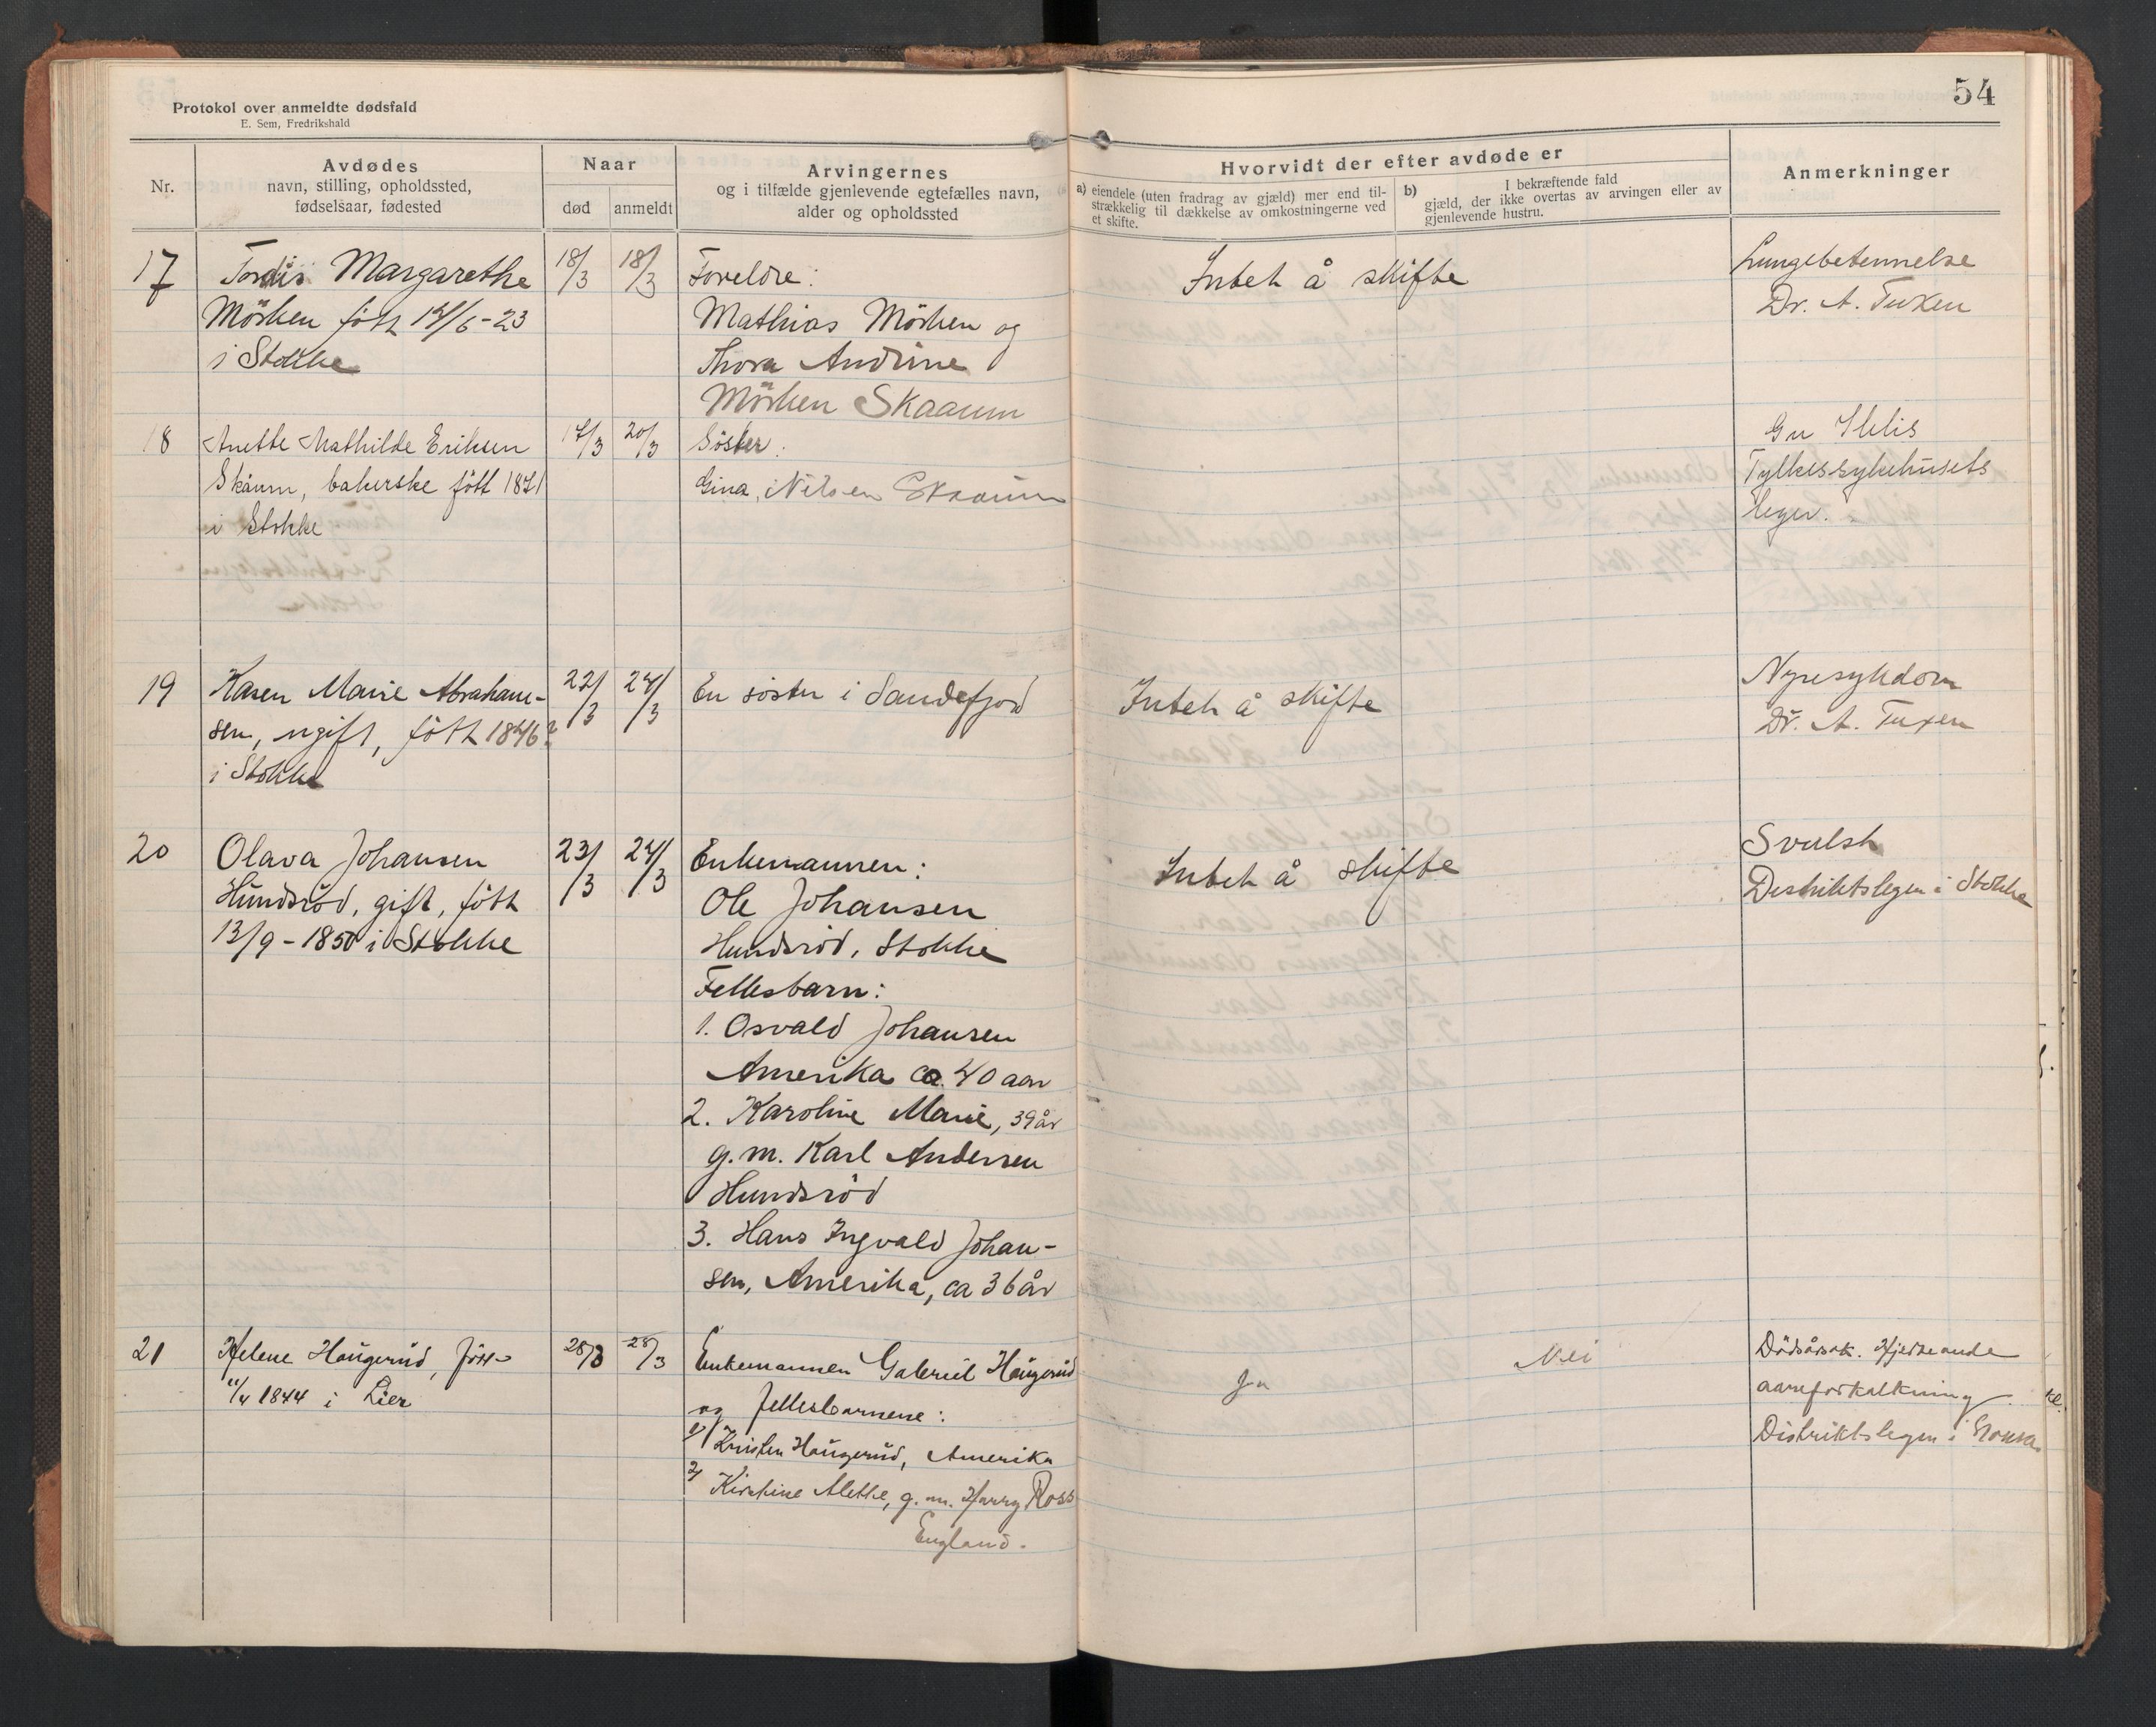 54
Protokol over anmeldte dødsfald
E. Sem, Fredrikshald
Nr.
Avdødes
navn, stilling, opholdssted,
fødselsaar, fødested
Naar
død
anmeldt
Arvingernes
og i tilfælde gjenlevende egtefælles navn,
alder og opholdssted
Hvorvidt der efter avdøde er
a) eiendele (uten fradrag av gjæld) mer end til-
strækkelig til dækkelse av omkostningerne ved
et skifte.
b) I bekræftende fald
gjæld, der ikke overtas av arvingen eller av
gjenlevende hustru.
Anmerkninger
17
Tordis Margarethe
Mörken fött 14/6-23
i Stokke
18/3
18/3
Foreldre:
Mathias Mörken og
Thora Andrine
Mörken Skaaum
Intet å skifte
Lungebetennelse
Dr. A. Tuxen
18
Anette Mathilde Eriksen
Skaum, bakerske fött 1871
i Stokke
17/3
20/3
Söster:
Gina Nilsen Skaaum
Fylkessykehusets
leger.
19
Karen Marie Abraham-
sen, ugift, fött 1846?
i Stokke
22/3
24/3
En söster i Sandefjord
Intet å skifte
Nyresykdom
Dr. A. Tuxen
20
Olava Johansen
Hundsröd, gift, fött
13/9-1850 i Stokke
23/3
24/3
Enkemannen:
Ole Johansen
Hundsröd, Stokke
Fellesbarn:
1. Osvald Johansen
Amerika ca. 40 aar
2. Karoline Marie, 39 år
g. m. Karl Andersen
Hundsröd
3. Hans Ingvald Johan-
sen, Amerika, ca 36 år
Intet å skifte
Svulst
Distriktslegen i Stokke
21
Helene Haugerud, född
11/4 1844 i Lier
28/3
28/3
Enkemannen Gabriel Haugerud
og fellesbarnene:
1/ Kristen Haugerud, Amerika
2/ Kirstine Alethe, g. m. Harry Ross
England.
Ja
Nei
Dödsårsak. Hjerte ande
aareforkalkning
Distriktslegen i